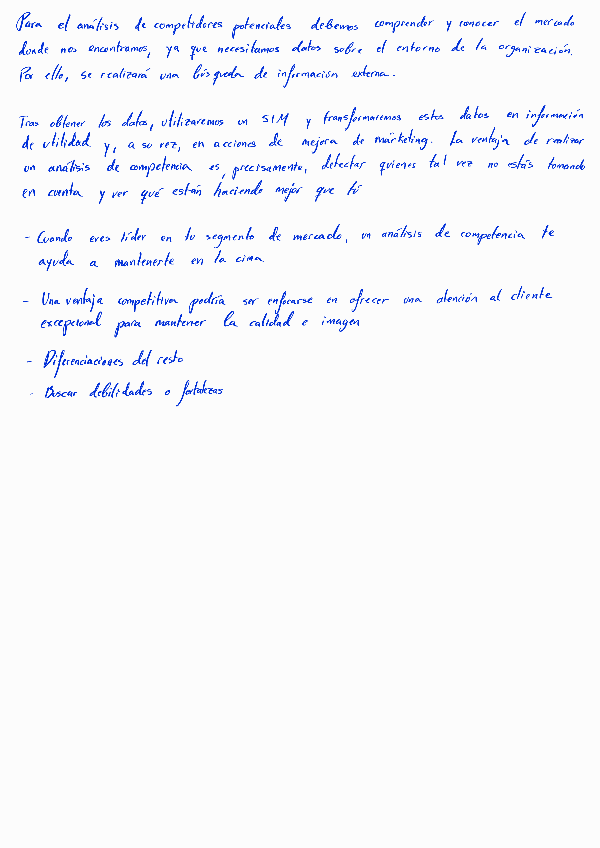 Para el análisis de competidores potenciales debemos comprender y conocer el mercado
donde nos encontramos, ya que necesitamos datos sobre el entorno de la organización.
Por ello, se realizará una búsqueda de información externa.
Tras obtener los datos, utilizaremos un SIM y transformaremos estos datos en información
de utilidad y, a su vez, en acciones de mejora de márketing. La ventaja de realizar
un análisis de competencia es, precisamente, detectar quienes tal vez no estás tomando
en cuenta y ver qué están haciendo mejor que tú
- Cuando eres líder en tu segmento de mercado, un análisis de competencia te
ayuda a mantenerte en la cima.
- Una ventaja competitiva podría ser enfocarse en ofrecer una atención al cliente
excepcional para mantener la calidad e imagen
- Diferenciaciones del resto
- Buscar debilidades o fortalezas